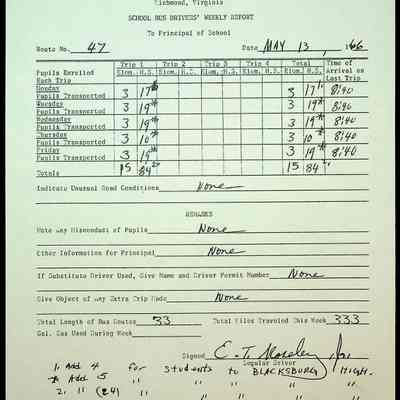 Richmond, Virginia
SCHOOL BUS DRIVERS' WEEKLY REPORT
To Principal of School
Route No. 47 Date MAY 13, 1966
Trip 1 Trip 2 Trip 3 Trip 4 Total Time of
Pupils Enrolled Elem. H.S. Elem. H.S. Elem. H.S. Elem. H.S. Elem. H.S. Arrival on
Each Trip Last Trip
Monday
Pupils Transported 3 17 3 17 8:40
Tuesday
Pupils Transported 3 19* 3 19* 8:40
Wednesday
Pupils Transported 3 19* 3 19* 8:40
Thursday
Pupils Transported 3 10* 3 10* 8:40
Friday
Pupils Transported 3 19* 3 19* 8:40
Totals 15 84 15 84
Indicate Unusual Road Conditions None
REMARKS
Note any Misconduct of Pupils None
Other Information for Principal None
If Substitute Driver Used, Give Name and Driver Permit Number None
Give Object of any Extra Trip Made None
Total Length of Bus Routes 33 Total Miles Traveled This Week 333
Gal. Gas Used During Week
Signed E. T. Moseley, Jr.
Regular Driver
1. Add 4 for students to BLACKSBURG HIGH.
* Add 5 " " " " "
2. " (24) " " " "